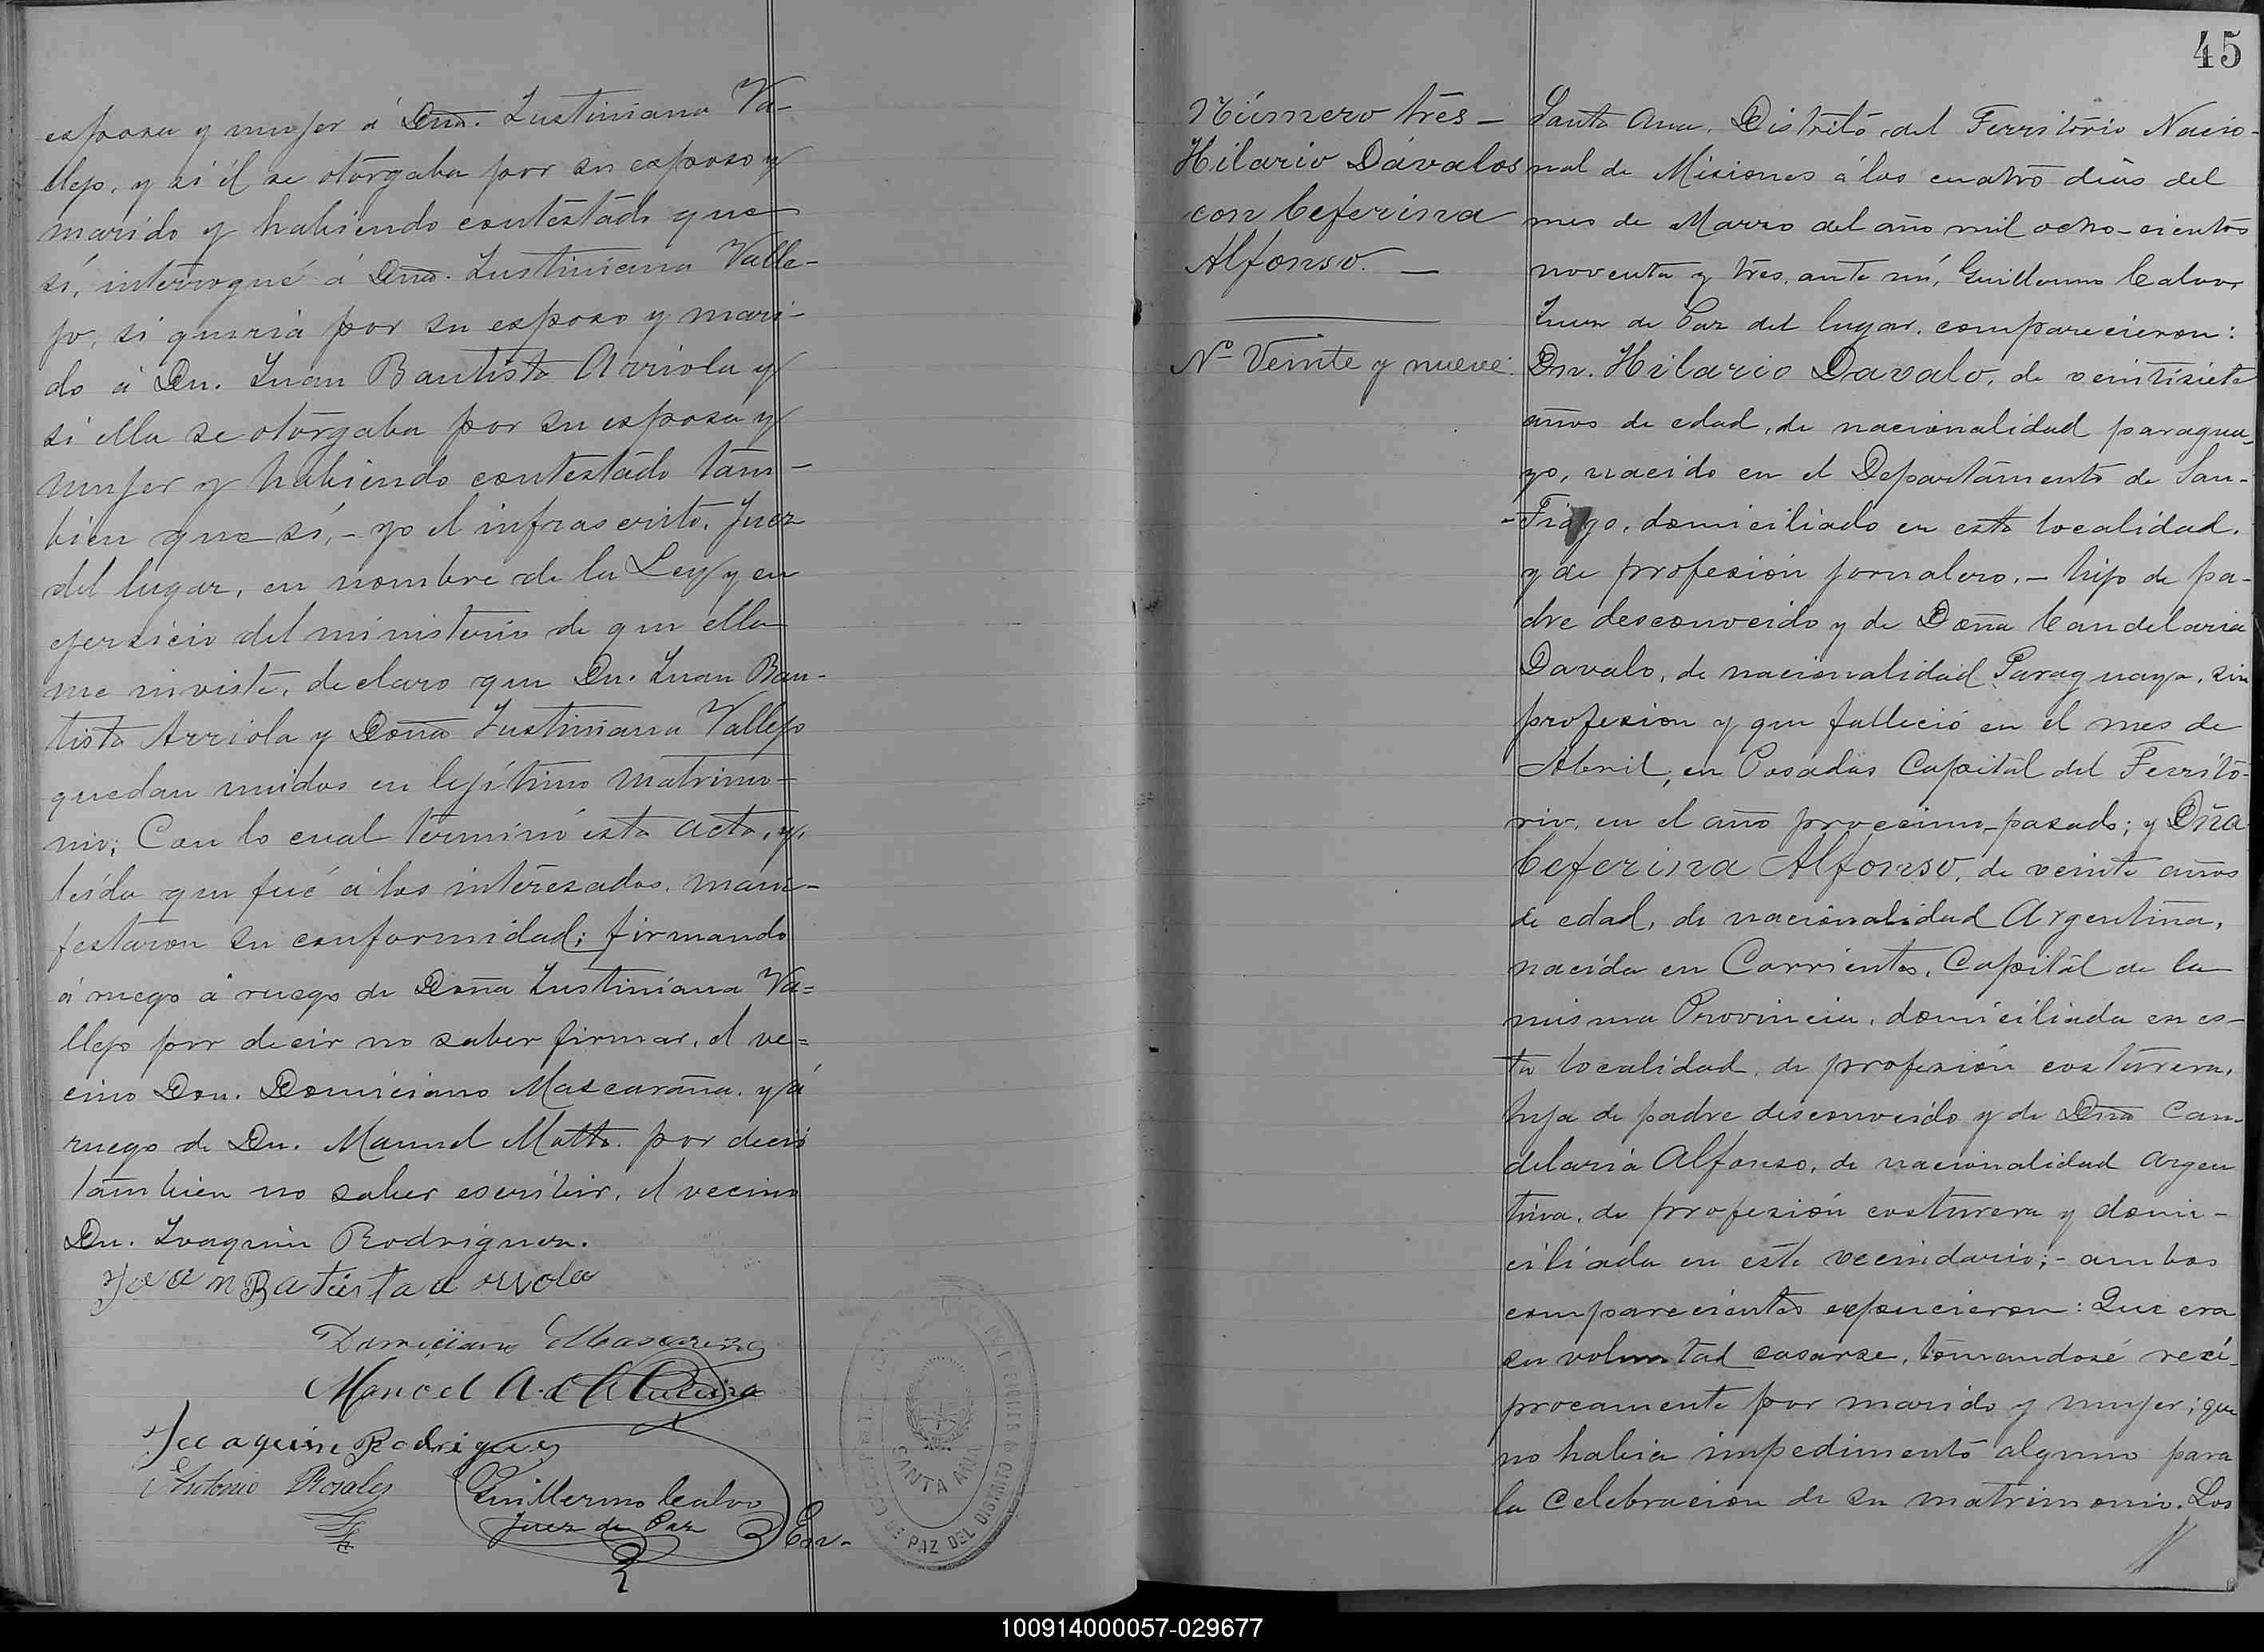 esposa y mujer á Dña. Justiniana Va-
llejo, y si él se otorgaba por su esposo y
marido y habiendo contestado que
sí, interrogué á Dña. Justiniana Valle-
jo, si queria por su esposo y mari-
do á Dn. Juan Bautista Arriola y
si ella se otorgaba por su esposa y
mujer y habiendo contestado tam-
bien que sí,- yo el infrascrito, Juez
del lugar, en nombre de la Ley y en
ejersicio del ministerio de que ella
me inviste, declaro que Dn. Juan Bau-
tista Arriola y Doña Justiniana Vallejo
quedan unidos en lejítimo matrimo-
nio; Con lo cual terminó esta acta, y,
leida que fué á los interesados, mani-
festaron su conformidad; firmando
á ruego á ruego de Doña Justiniana Va=
llejo por decir no saber firmar, el ve=
cino Don. Domiciano Mascaraña. y á
ruego de Dn. Manuel Motta. por decir
tambien no saber escribir, el vecino
Dn. Joaquin Rodriguez.
Juan Batista arriola
Domiciano
Manoel A. de
Joaquin Rodriguez
Antonio Rosales
Guillermo Calvo
Juez de Paz
SANTA ANA
DE PAZ DEL DISTRITO
45
Número tres -
Hilario Dávalos
con Ceferina
Alfonso. -
Nº Veinte y nueve.
Santa Ana, Distrito del Territorio Nacio-
nal de Misiones á los cuatro dias del
mes de Marzo del año mil ocho-cientos
noventa y tres, ante mí, Guillermo Calvo,
Juez de Paz del lugar, comparecieron:
Dn. Hilario Davalo, de veintisiete
años de edad, de nacionalidad paragua-
yo, nacido en el Departamento de San-
-Tiago, domiciliado en esta localidad,
y de profesión jornalero,- hijo de pa-
dre desconocido y de Doña Candelaria
Davalo, de nacionalidad Paraguaya, sin
profesion y que falleció en el mes de
Abril, en Posadas Capital del Territo-
rio, en el año procsimo-pasado; y Dña
Ceferina Alfonso, de veinte años
de edad, de nacionalidad Argentina,
nacida en Corrientes, Capital de la
misma Provincia, domiciliada en es-
ta localidad, de profesión costurera,
hija de padre desconocido y de Dña Can-
delaria Alfonso, de nacionalidad argen
tina, de profesión costurera y domi-
ciliada en este vecindario;- ambos
comparecientes espucieron: Que era
su voluntad casarse, tomandosé recí-
procamente por marido y mujer; que
no habia impedimento alguno para
la celebracion de su matrimonio. Los
100914000057-029677